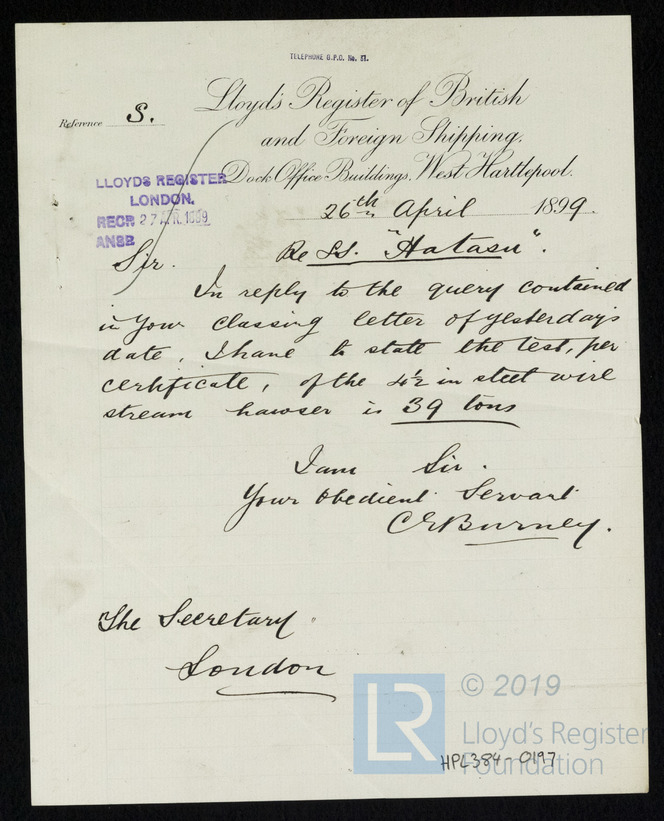 TELEPHONE G.P.O. No. 51.
Lloyd's Register of British
and Foreign Shipping.
Reference S.
Dock Office Buildings, West Hartlepool.
LLOYDS REGISTER
LONDON.
RECD 27 APR. 1899
ANSD
26th April 1899.
Sir. Re SS. "Hatasu".
In reply to the query contained
in Your classing letter of yesterday's
date, I have to state the test, per
certificate, of the 4½ in steel wire
stream hawser is 39 tons
I am Sir.
Your Obedient Servant
C E Burney.
The Secretary
London
LR
© 2019
Lloyd's Register
Foundation
HPL384-0197